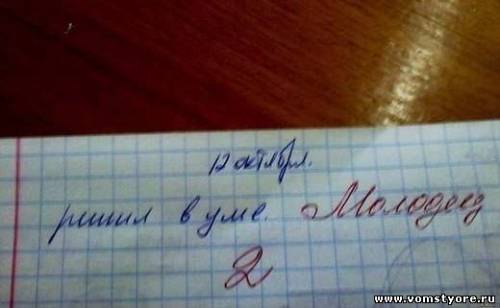 12 октября.
решил в уме. Молодец
2
www.vomstyore.ru